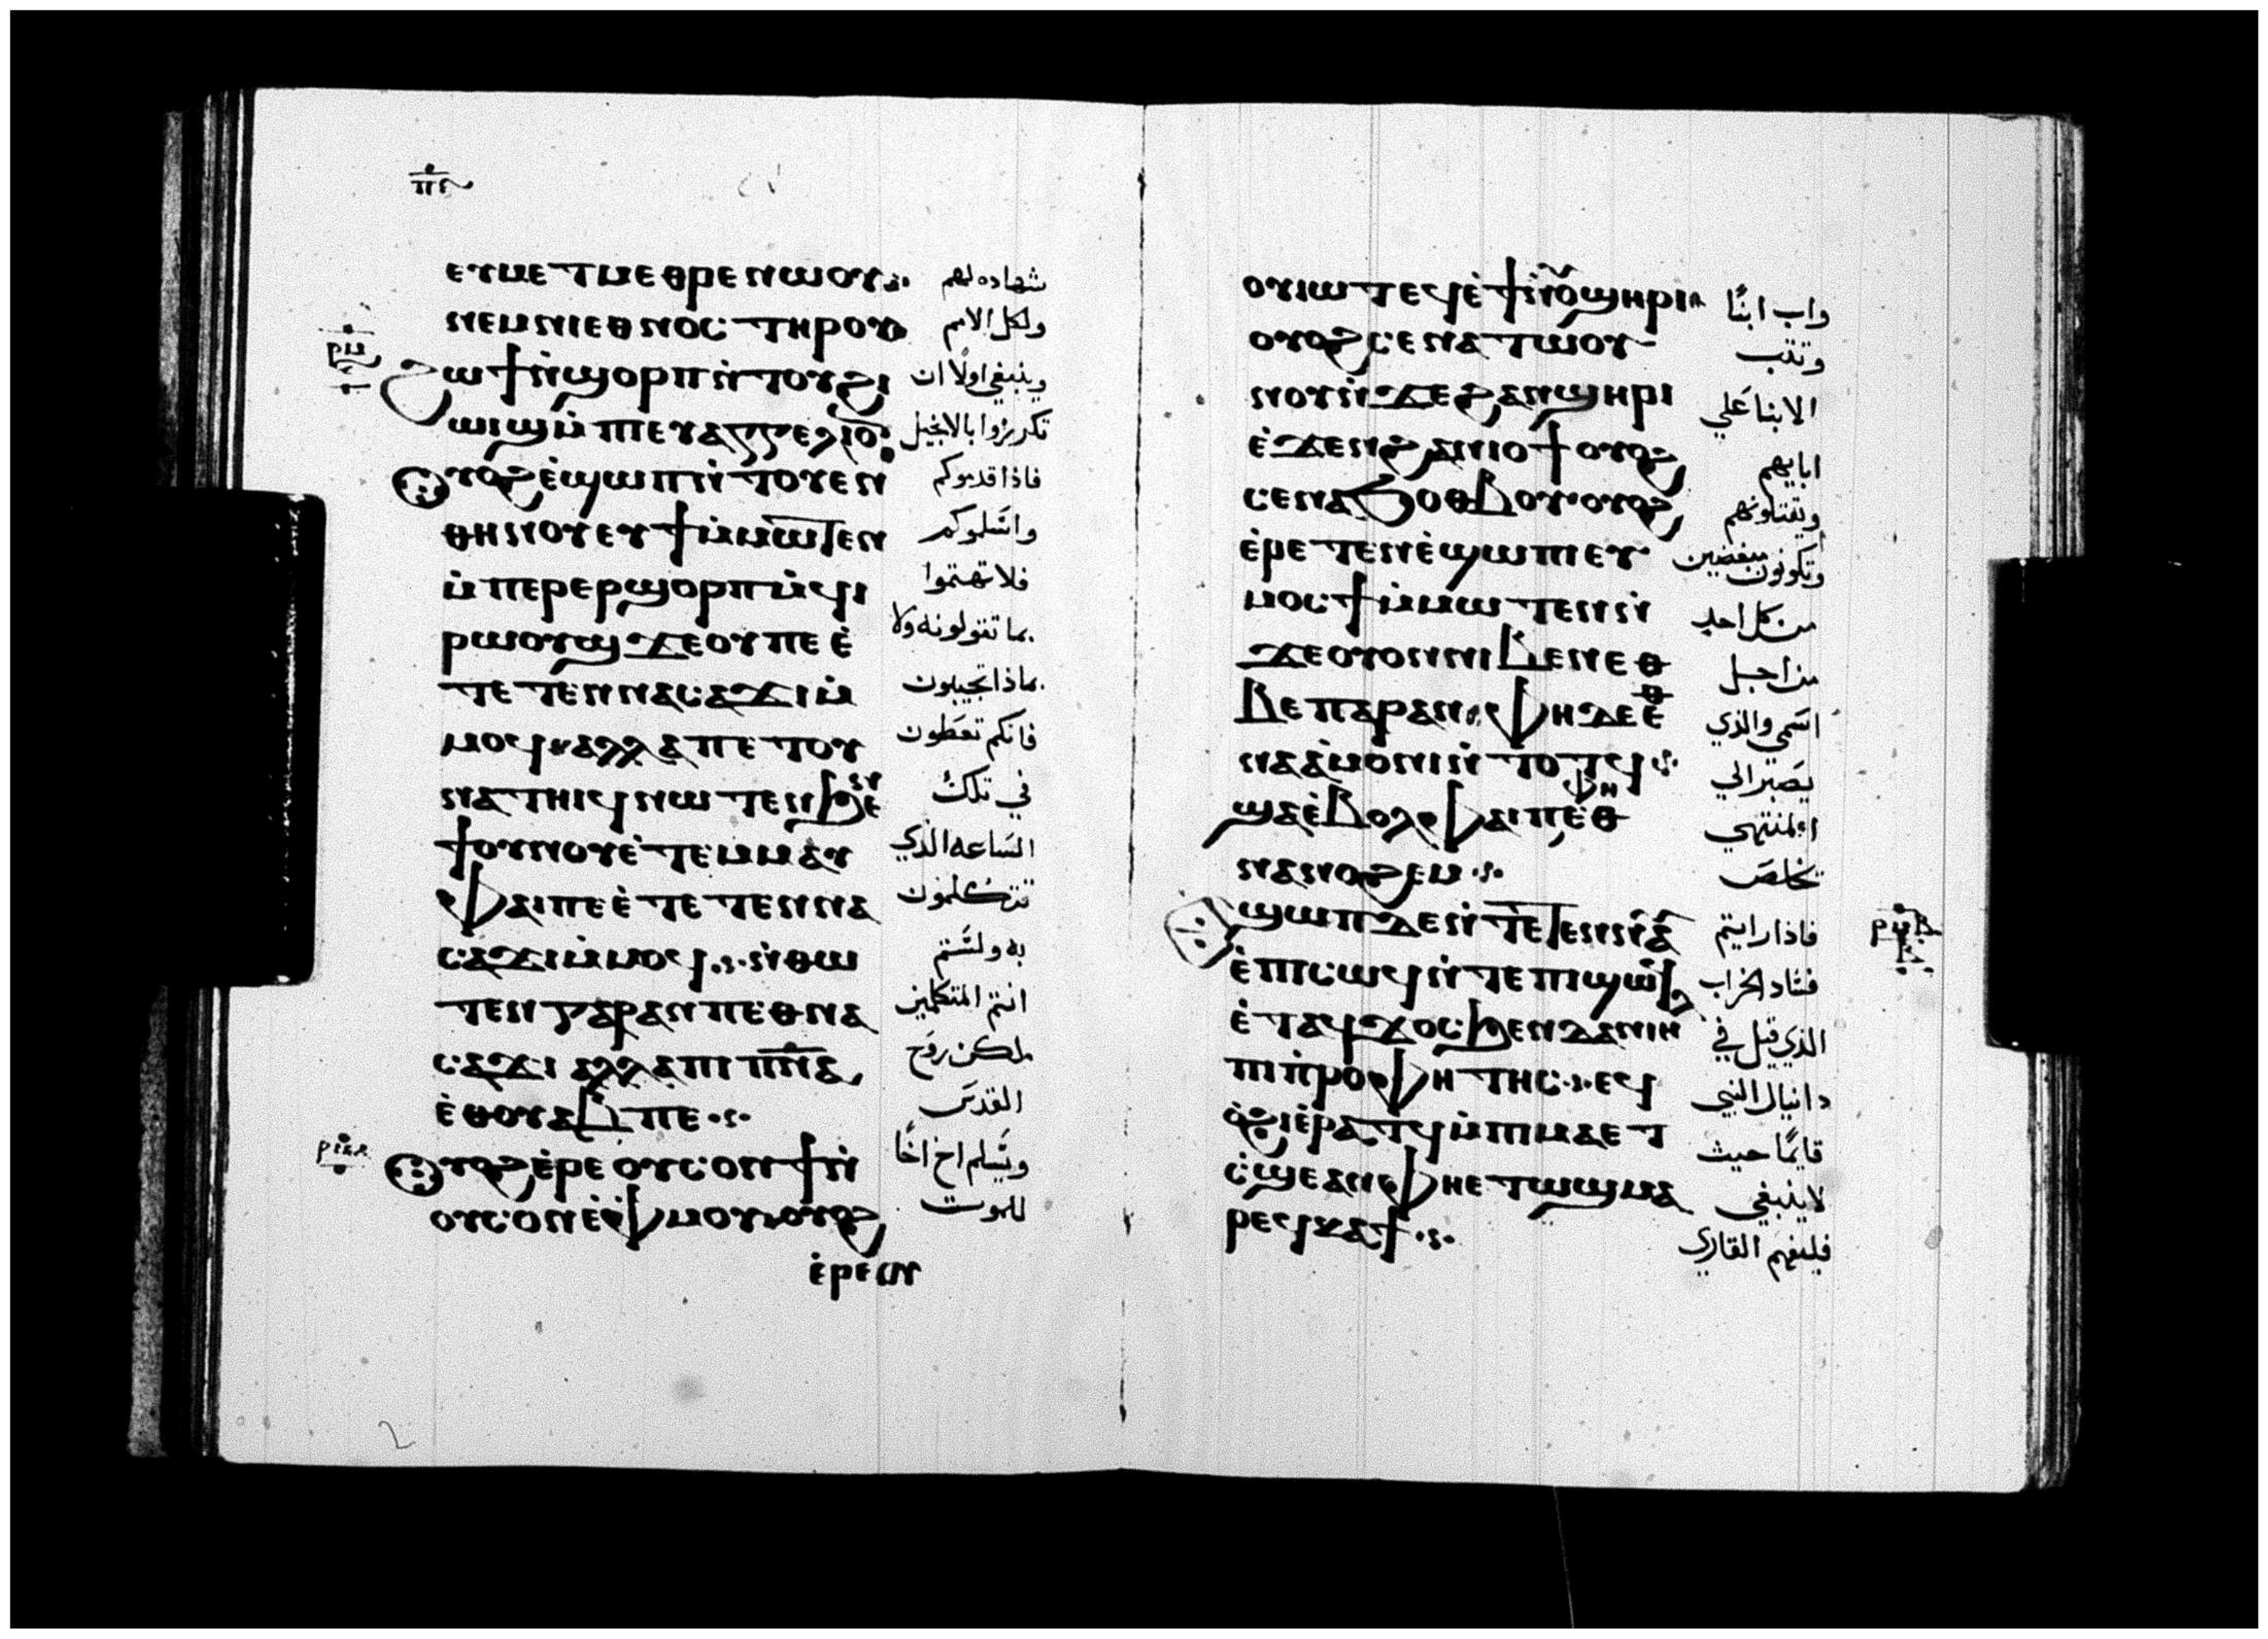 ⲡⲋ
ⲉⲩⲙⲉⲧⲙⲉⲑⲣⲉ ⲛⲱⲟⲩ
شهاده لهم
ⲛⲉⲙ ⲛⲓⲉⲑⲛⲟⲥ ⲧⲏⲣⲟⲩ
ولكل الامم
ϩⲱϯ ⲛ̀ϣⲟⲣⲡ ⲛ̀ⲧⲟⲩϩⲓ
وينبغي اولًا ان
ⲱⲓϣ ⲙ̀ⲡⲉⲩⲁⲅⲅⲉⲗⲓⲟ̅
تكرزوا بالانجيل
ⲟⲩⲟϩ ⲉ̀ϣⲱⲡ ⲛ̀ⲧⲟⲩⲉⲛ
فاذا قدموكم
ⲑⲏⲛⲟⲩ ⲉⲩϯ ⲙ̀ⲙⲱⲧⲉⲛ
واسلموكم
ⲙ̀ⲡⲉⲣⲉⲣϣⲟⲣⲡ ⲙ̀ϥⲓ
فلا تهتموا
ⲣⲱⲟⲩϣ ϫⲉ ⲟⲩ ⲡⲉ ⲉ̀
بما تقولونه ولا
ⲧⲉⲧⲉⲛⲛⲁⲥⲁϫⲓ ⲙ̀
بماذا تجيبون
ⲙⲟϥ ⲁⲗⲗⲁ ⲡⲉⲧⲟⲩ
فانكم تعطون
ⲛⲁⲧⲏⲓϥ ⲛⲱⲧⲉⲛ ϧⲉⲛ
في تلك
ϯⲟⲩⲛⲟⲩ ⲉ̀ⲧⲉⲙⲙⲁⲩ
الساعه الذي
ⲫⲁⲓ ⲡⲉ ⲉ̀ⲧⲉⲧⲉⲛⲛⲁ
تتكلمون
ⲥⲁϫⲓ ⲙ̀ⲙⲟϥ ⲛ̀ⲑⲱ
به ولستم
ⲧⲉⲛ ⲅⲁⲣ ⲁⲛ ⲡⲉⲑⲛⲁ
انتم المتكلمين
ⲥⲁϫⲓ ⲁⲗⲗⲁ ⲡⲓⲡ̅ⲛ̅ⲁ̅
لكن روح
ⲉ̀ⲑⲟⲩⲁⲃ ⲡⲉ
القدس
ⲟⲩⲟϩ ⲉ̀ⲣⲉ ⲟⲩⲥⲟⲛ ϯ ⲛ̀
ويسلم اخ اخًا
ⲟⲩⲥⲟⲛ ⲉ̀ⲫⲙⲟⲩ ⲟⲩⲟϩ
للموت
ⲉ̀ⲣⲉⲟⲩ
ⲟⲩⲓⲱⲧ ⲉϥⲉ̀ϯ ⲛ̀ⲟⲩϣⲏⲣⲓ
واب ابنًا
ⲟⲩⲟϩ ⲥⲉⲛⲁⲧⲱⲟⲩ
وتثب
ⲛⲟⲩ ⲛ̀ϫⲉ ϩⲁⲛϣⲏⲣⲓ
الابنا علي
ⲉ̀ϫⲉⲛ ϩⲁⲛⲓⲟϯ ⲟⲩⲟϩ
ابايهم
ⲥⲉⲛⲁϧⲟⲑⲃⲟⲩ ⲟⲩⲟϩ
ويقتلونهم
ⲉ̀ⲣⲉⲧⲉⲛⲉ̀ϣⲱⲡⲓ ⲉⲩ
وتكونون مبغضين
ⲙⲟⲥϯ ⲙ̀ⲙⲱⲧⲉⲛ ⲛ̀
من كل احد
ϫⲉ ⲟⲩⲟⲛ ⲛⲓⲃⲉⲛ ⲉⲑ
من اجل
ⲃⲉ ⲡⲁⲣⲁⲛ ⲫⲏ ⲇⲉ ⲉ̀ⲑ
اسمي والذي
ⲛⲁⲁ̀ⲙⲟⲛⲓ ⲛ̀ⲧⲟⲧϥ
يصبر الي
ϣⲁ ⲉ̀ⲃⲟⲗ ⲫⲁⲓ ⲡⲉ ⲫⲏ ⲉ̀ⲑ
المنتهي
ⲛⲁⲛⲟϩⲉⲙ
يخلص
ⲉϣⲱⲡ ϫⲉ ⲛ̀ⲧⲉⲧⲉⲛⲛⲁ
فاذا رايتم
ⲉ̀ⲡⲓⲥⲱϥ ⲛ̀ⲧⲉ ⲡⲓϣⲱϥ
فساد الخراب
ⲉ̀ⲧⲁϥϫⲟⲥ ϧⲉⲛ ⲇⲁⲛⲓⲏⲗ
الذي قيل في
ⲡⲓⲡ̀ⲣⲟⲫⲏⲧⲏⲥ ⲉϥ
دانيال النبي
ⲟ̀ϩⲓ ⲉ̀ⲣⲁⲧϥ ⲙ̀ⲡⲓⲙⲁ ⲉⲧ
قايمًا حيث
ⲥ̀ϣⲉ ⲁⲛ ⲫⲏⲉⲧⲱϣ ⲙⲁ
لا ينبغي
ⲣⲉϥⲕⲁϯ
فليفهم القاري
ⲣⲙⲃ